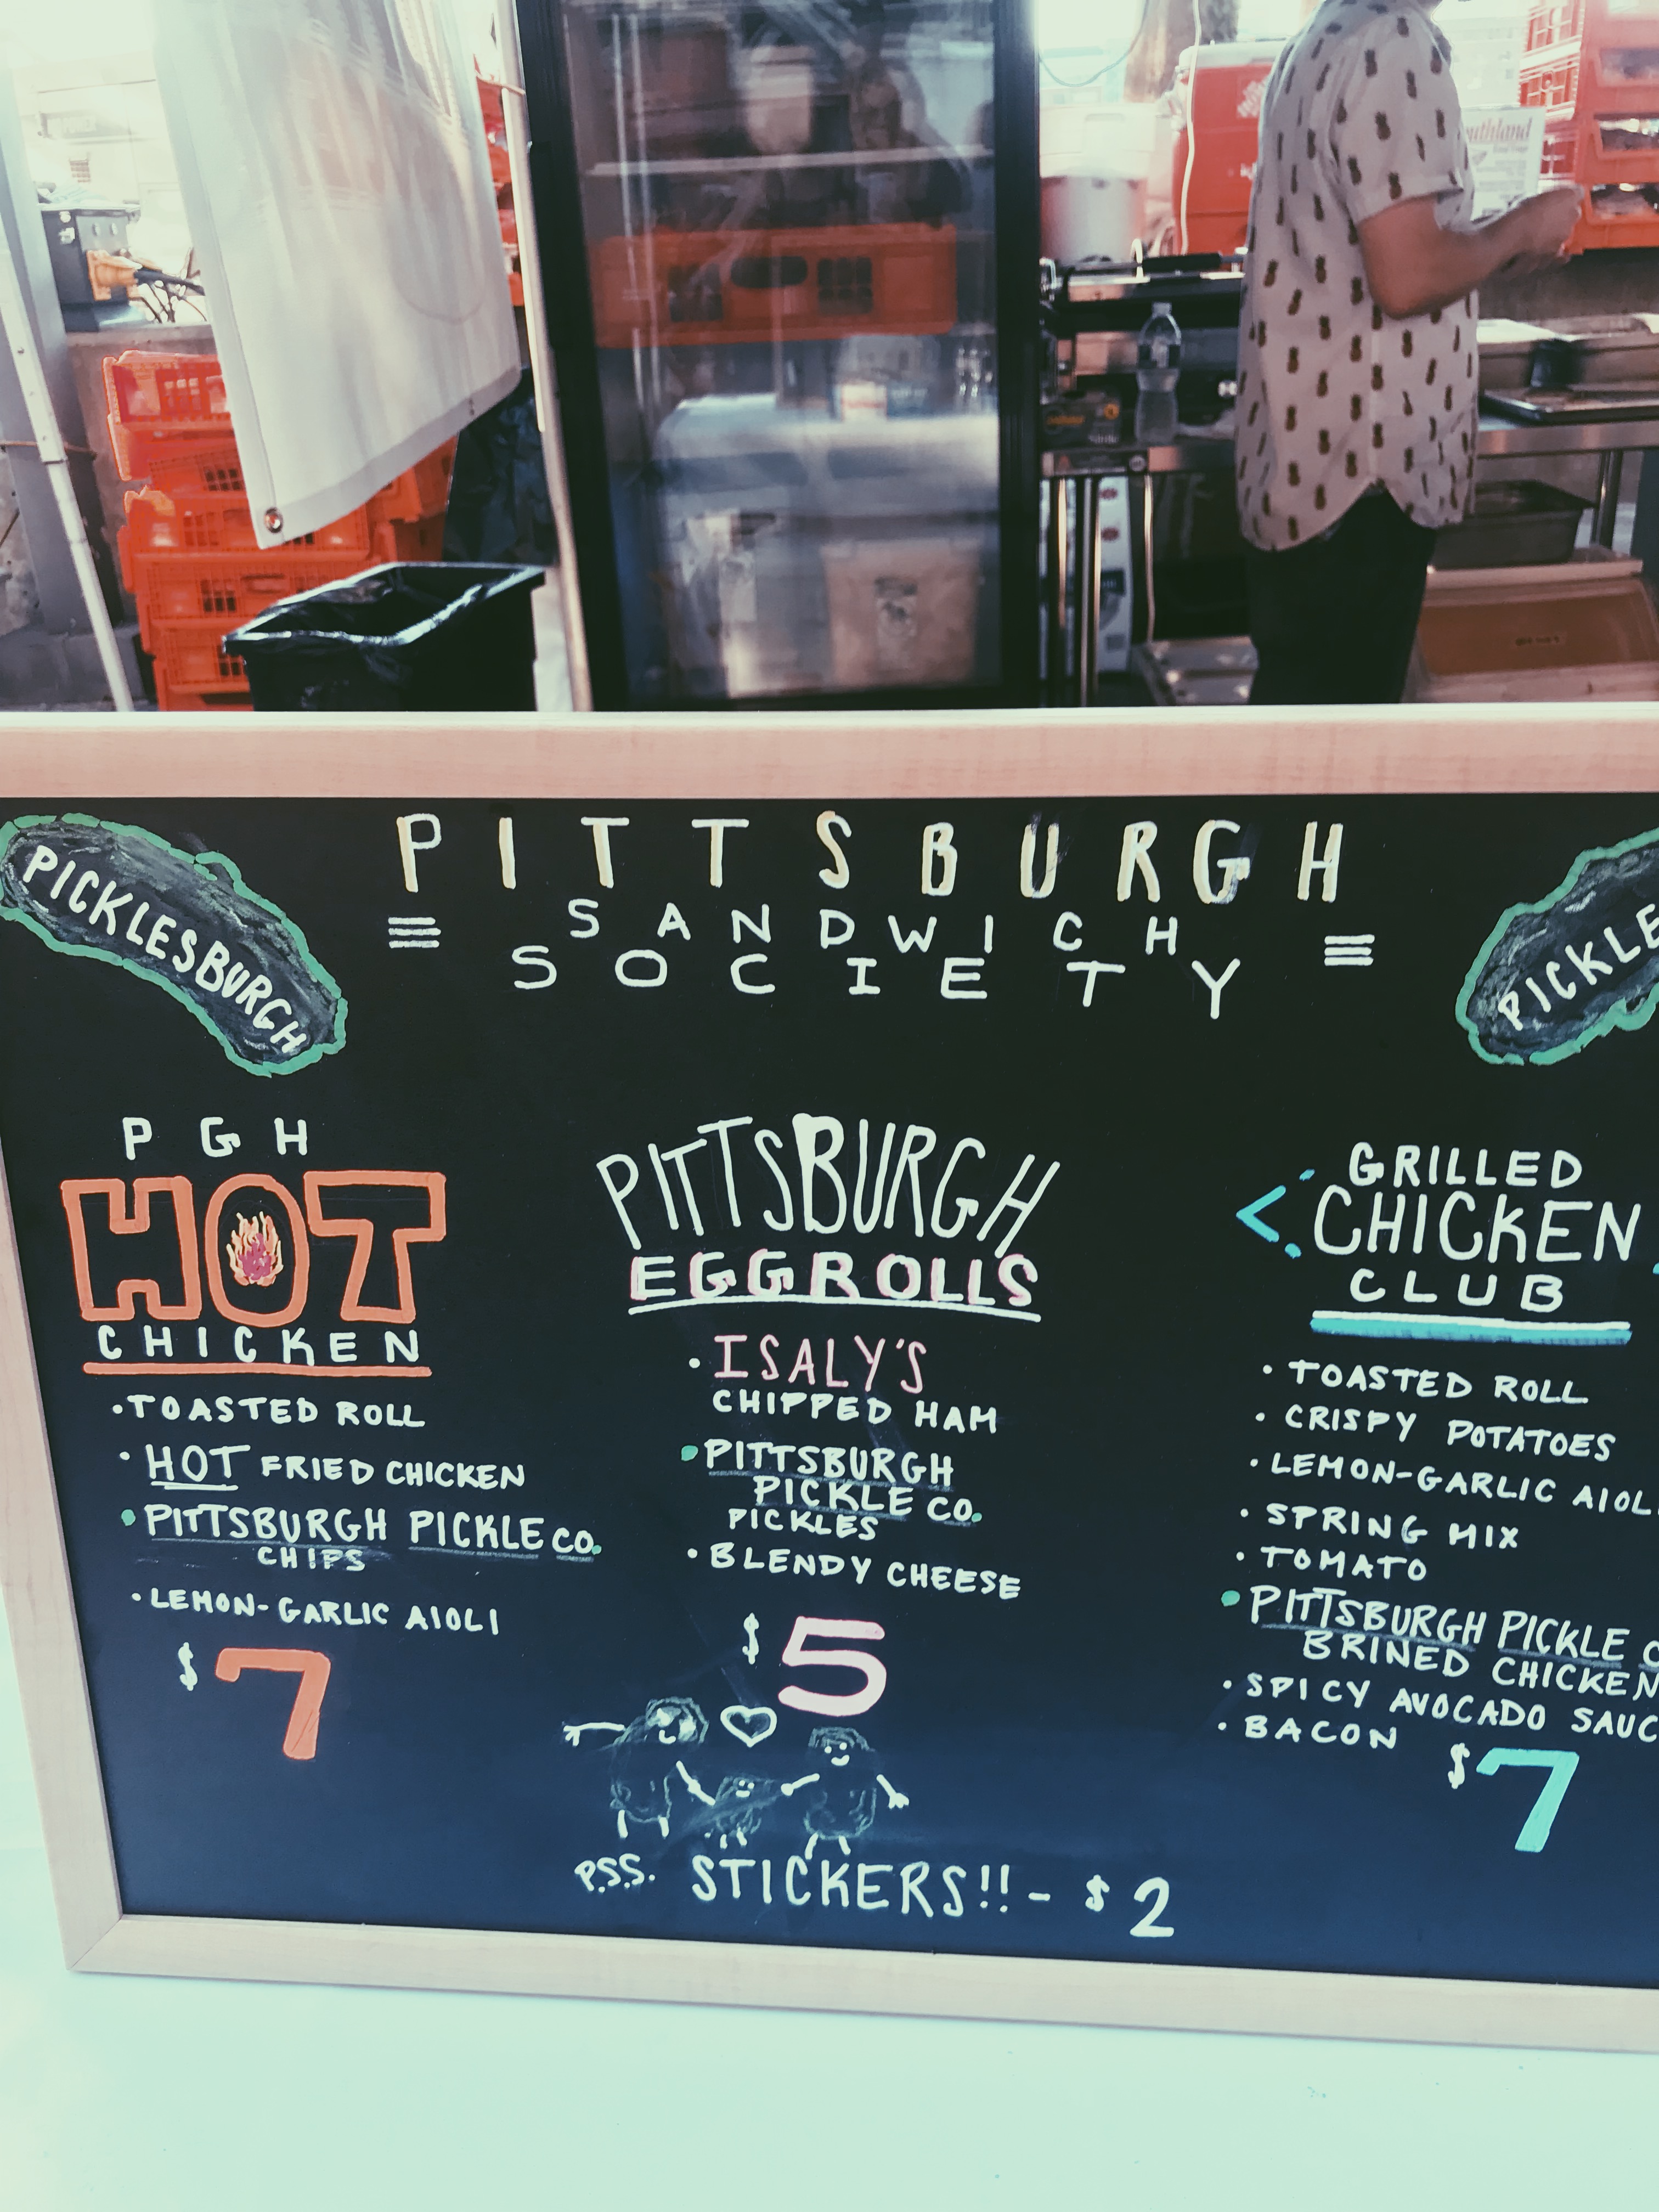 uthland
PICKLESBURGH
PITTSBURGH
SANDWICH
SOCIETY
PICKLE
PGH
HOT
CHICKEN
• TOASTED ROLL
• HOT FRIED CHICKEN
• PITTSBURGH PICKLE CO.
CHIPS
• LEMON-GARLIC AIOLI
$7
PITTSBURGH
EGGROLLS
• ISALY'S
CHIPPED HAM
• PITTSBURGH
PICKLE CO.
PICKLES
• BLENDY CHEESE
$5
GRILLED
CHICKEN
CLUB
• TOASTED ROLL
• CRISPY POTATOES
• LEMON-GARLIC AIOL
• SPRING MIX
• TOMATO
• PITTSBURGH PICKLE C
BRINED CHICKEN
• SPICY AVOCADO SAUC
• BACON
$7
P.S.S. STICKERS!! - $2